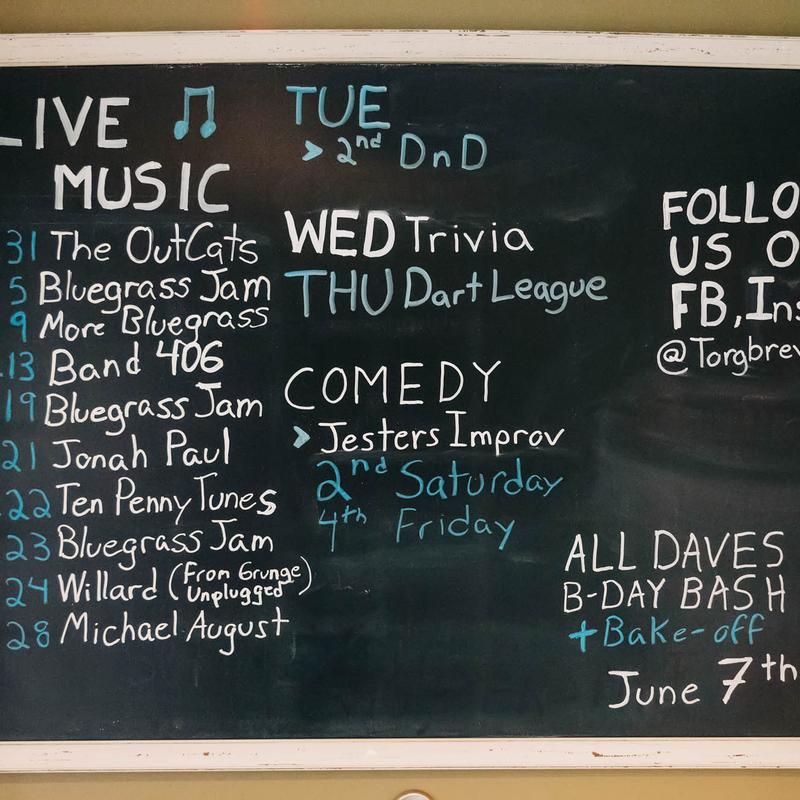 LIVE
MUSIC
31 The OutCats
5 Bluegrass Jam
9 More Bluegrass
13 Band 406
19 Bluegrass Jam
21 Jonah Paul
22 Ten Penny Tunes
23 Bluegrass Jam
24 Willard (From Grunge Unplugged)
28 Michael August
TUE
> 2nd DnD
WED Trivia
THU Dart League
COMEDY
> Jesters Improv
2nd Saturday
4th Friday
FOLLO
US O
FB, Ins
@Torgbrew
ALL DAVES
B-DAY BASH
+Bake-off
June 7th